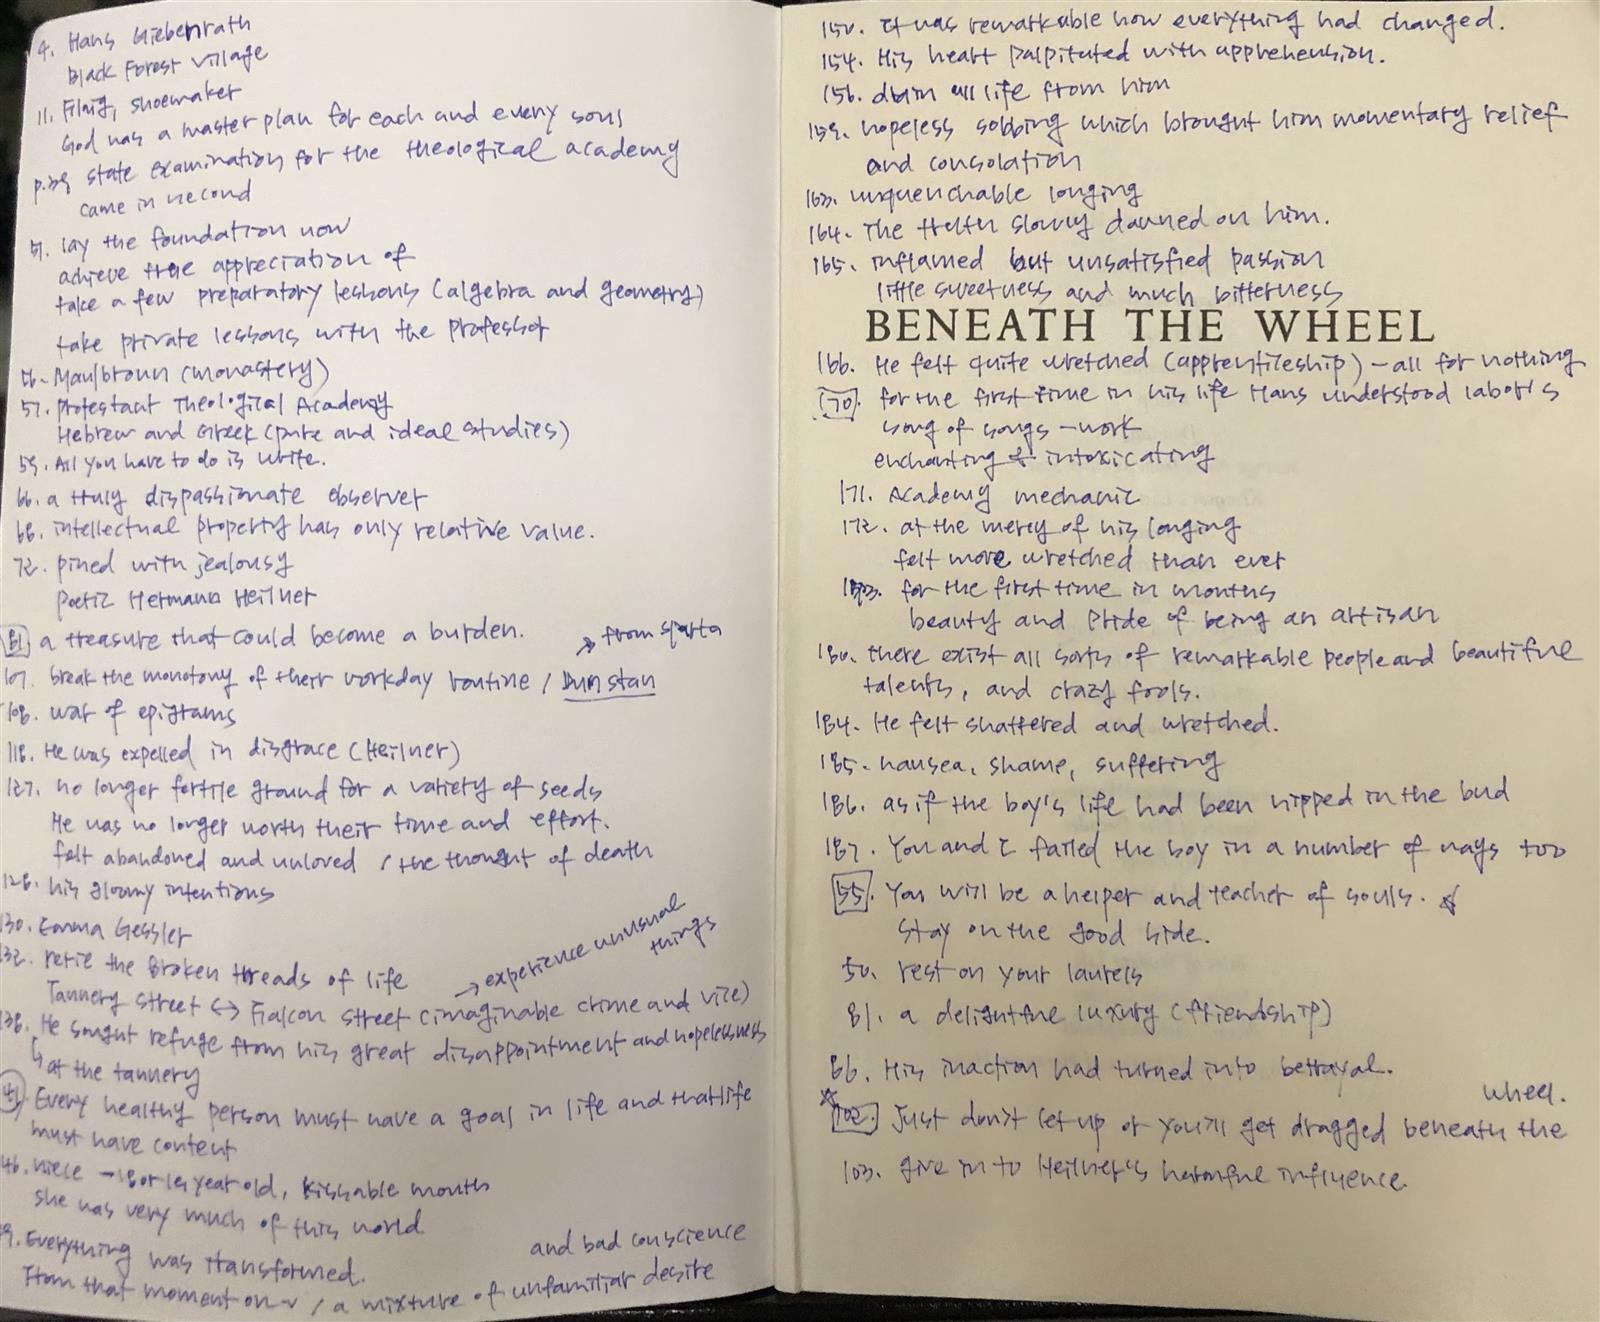 4. Hans Giebenrath
Black Forest village
11. Flaig, shoemaker
God has a master plan for each and every soul
state examination for the theological academy
came in second
51. lay the foundation now
achieve true appreciation of
take a few preparatory lessons (algebra and geometry)
take private lessons with the professor
56. Maulbronn (monastery)
57. protestant Theological Academy
Hebrew and Greek (pure and ideal studies)
59. All you have to do is write.
66. a truly dispassionate observer
68. intellectual property has only relative value.
72. pined with jealousy
poetic Hermann Heilner
81 a treasure that could become a burden.
→ from sparta
107. break the monotony of their workday routine / Dunstan
108. war of epigrams
118. He was expelled in disgrace (Heilner)
127. no longer fertile ground for a variety of seeds
He was no longer worth their time and effort.
felt abandoned and unloved / the thought of death
128. his gloomy intentions
130. Emma Gessler
132. retie the Broken threads of life
→ experience unusual
things
Tannery street ↔ Falcon street (imaginable crime and vice)
138. He sought refuge from his great disappointment and hopelessness
↳ at the tannery
41. Every healthy person must have a goal in life and that life
must have content
46. niece → 18 or 19 year old, kissable mouth
she was very much of this world
9. Everything was transformed.
and bad conscience
From that moment on / a mixture of unfamiliar desire
150. It was remarkable how everything had changed.
154. His heart palpitated with apprehension.
156. drain all life from him
159. hopeless sobbing which brought him momentary relief
and consolation
163. unquenchable longing
164. The truth slowly dawned on him.
165. inflamed but unsatisfied passion
little sweetness and much bitterness
BENEATH THE WHEEL
166. He felt quite wretched (apprenticeship) - all for nothing
170. for the first time in his life Hans understood labor's
song of songs - work
enchanting & intoxicating
171. Academy mechanic
172. at the mercy of his longing
felt more wretched than ever
for the first time in months
beauty and pride of being an artisan
180. there exist all sorts of remarkable people and beautiful
talents, and crazy fools.
184. He felt shattered and wretched.
185. nausea, shame, suffering
186. as if the boy's life had been nipped in the bud
187. You and I failed the boy in a number of ways too
55. You will be a helper and teacher of souls. ☆
Stay on the good side.
50. rest on your laurels
81. a delightful luxury (friendship)
86. His inaction had turned into betrayal.
wheel.
☆ 102. Just don't let up or you'll get dragged beneath the
103. give in to Heilner's harmful influence.